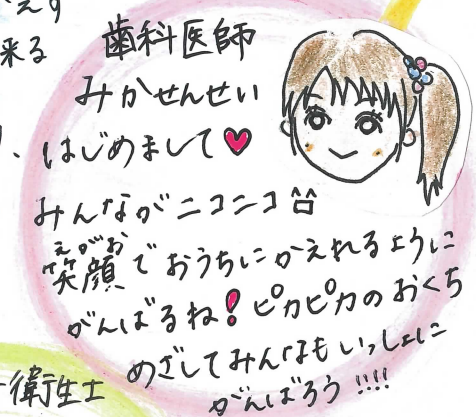 えす
来る
歯科医師
みかせんせい
はじめまして♥
みんながニコニコ^^
えがお
笑顔でおうちにかえれるように
がんばるね！ピカピカのおくち
めざしてみんなもいっしょに
がんばろう!!!!
衛生士